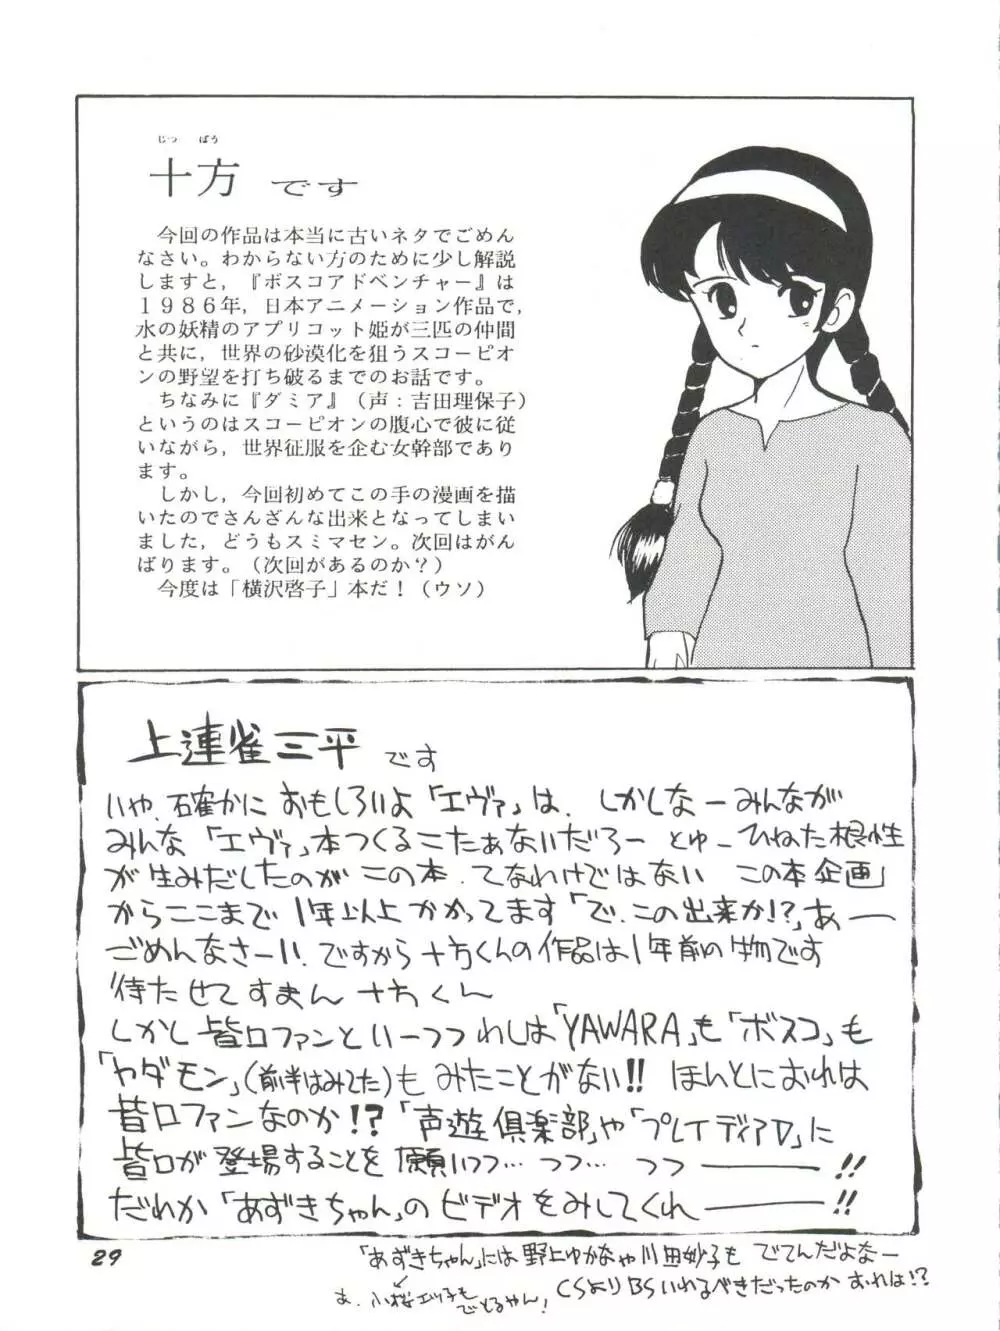 じっ ぽう
十方 です
今回の作品は本当に古いネタでごめん
なさい。わからない方のために少し解説
しますと，『ボスコアドベンチャー』は
１９８６年，日本アニメーション作品で，
水の妖精のアプリコット姫が三匹の仲間
と共に，世界の砂漠化を狙うスコーピオ
ンの野望を打ち破るまでのお話です。
ちなみに『ダミア』（声：吉田理保子）
というのはスコーピオンの腹心で彼に従
いながら，世界征服を企む女幹部であり
ます。
しかし，今回初めてこの手の漫画を描
いたのでさんざんな出来となってしまい
ました，どうもスミマセン。次回はがん
ばります。（次回があるのか？）
今度は「横沢啓子」本だ！（ウソ）
上連雀三平 です
いや、確かに おもしろいよ「エヴァ」は、しかしなーみんなが
みんな「エヴァ」本つくるこたぁないだろー とゅーひねた根性
が生みだしたのが この本、てなわけではない この本企画
からここまで 1年以上かかってます「で、この出来か!?」あー
ごめんなさーい、ですから十方くんの作品は1年前の物です
待たせてすまん 十方くん
しかし皆口ファンといーつつ わしは「YAWARA」も「ボスコ」も
「ヤダモン」(前半はみてた)も みたことがない!! ほんとにおれは
皆口ファンなのか!? 「声遊倶楽部」や「プレイディアD」に
皆口が登場することを願いつつ… つつ… つつ――!!
だれか「あずきちゃん」の ビデオをみしてくれ――!!
29
「あずきちゃん」には野上ゆかなや川田妙子も でてんだよなー
あ、小桜エツ子も
でとるやん!
CSよりBSいれるべきだったのか おれは!?